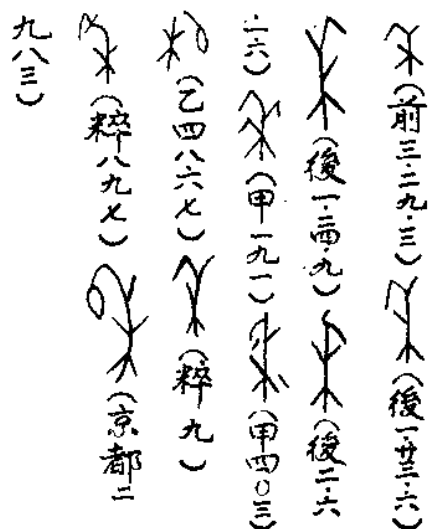 (前三·二九·三) (後一·廿三·六)
(後一·二四·九) (後二·六
·一六) (甲一九一) (甲四〇三)
(乙四八六七) (粹九)
(粹八九七) (京都二
九八三)